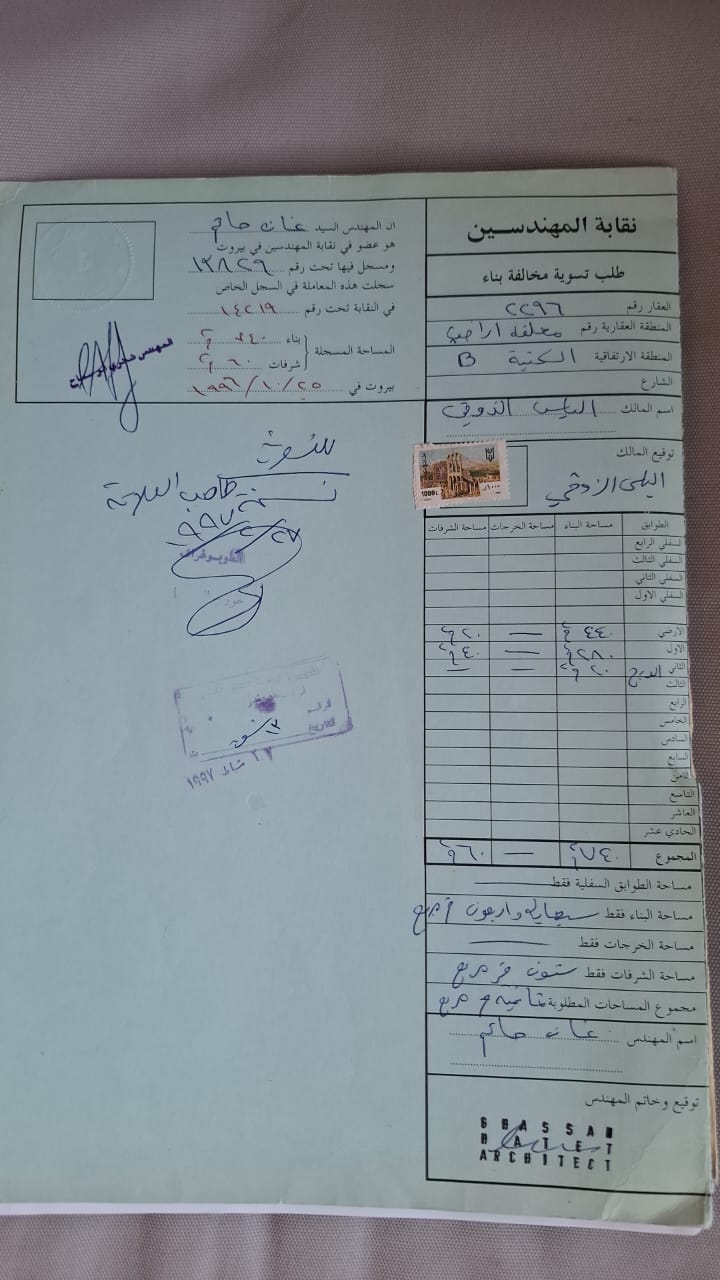 نقابة المهندسين
طلب تسوية مخالفة بناء
العقار رقم ٢٢٩٦
المنطقة العقارية رقم معلقة اراضي
المنطقة الارتفاقية B
الشارع
اسم المالك الياس الذوقي
توقيع المالك
الياس الزوقي
1000L
الطوابق مساحة البناء مساحة الخرجات مساحة الشرفات
السفلي الرابع
السفلي الثالث
السفلي الثاني
السفلي الاول
الارضي ٤٤٠ م٢ — ٢٠ م٢
الاول ٢٨٠ م٢ — ٤٠ م٢
الثاني الدرج ٢٠ م٢ — —
الثالث
الرابع
الخامس
السادس
السابع
الثامن
التاسع
العاشر
الحادي عشر
المجموع ٧٤٠ م٢ — ٦٠ م٢
مساحة الطوابق السفلية فقط
مساحة البناء فقط سبعماية واربعون م مربع
مساحة الخرجات فقط
مساحة الشرفات فقط ستون متر مربع
مجموع المساحات المطلوبة ثمانمية م مربع
اسم المهندس غسان حاتم
توقيع وخاتم المهندس
GHASSAN
HATEM
ARCHITECT
ان المهندس السيد غسان حاتم
هو عضو في نقابة المهندسين في بيروت
ومسجل فيها تحت رقم ١٣٨٢٩
سجلت هذه المعاملة في السجل الخاص
في النقابة تحت رقم ١٤٢١٩
المساحة المسجلة
بناء ٧٤٠ م٢
شرفات ٦٠ م٢
بيروت في ١٩٩٦/١٠/٢٥
المهندس
الرقم
التاريخ
٢٧ شباط ١٩٩٧